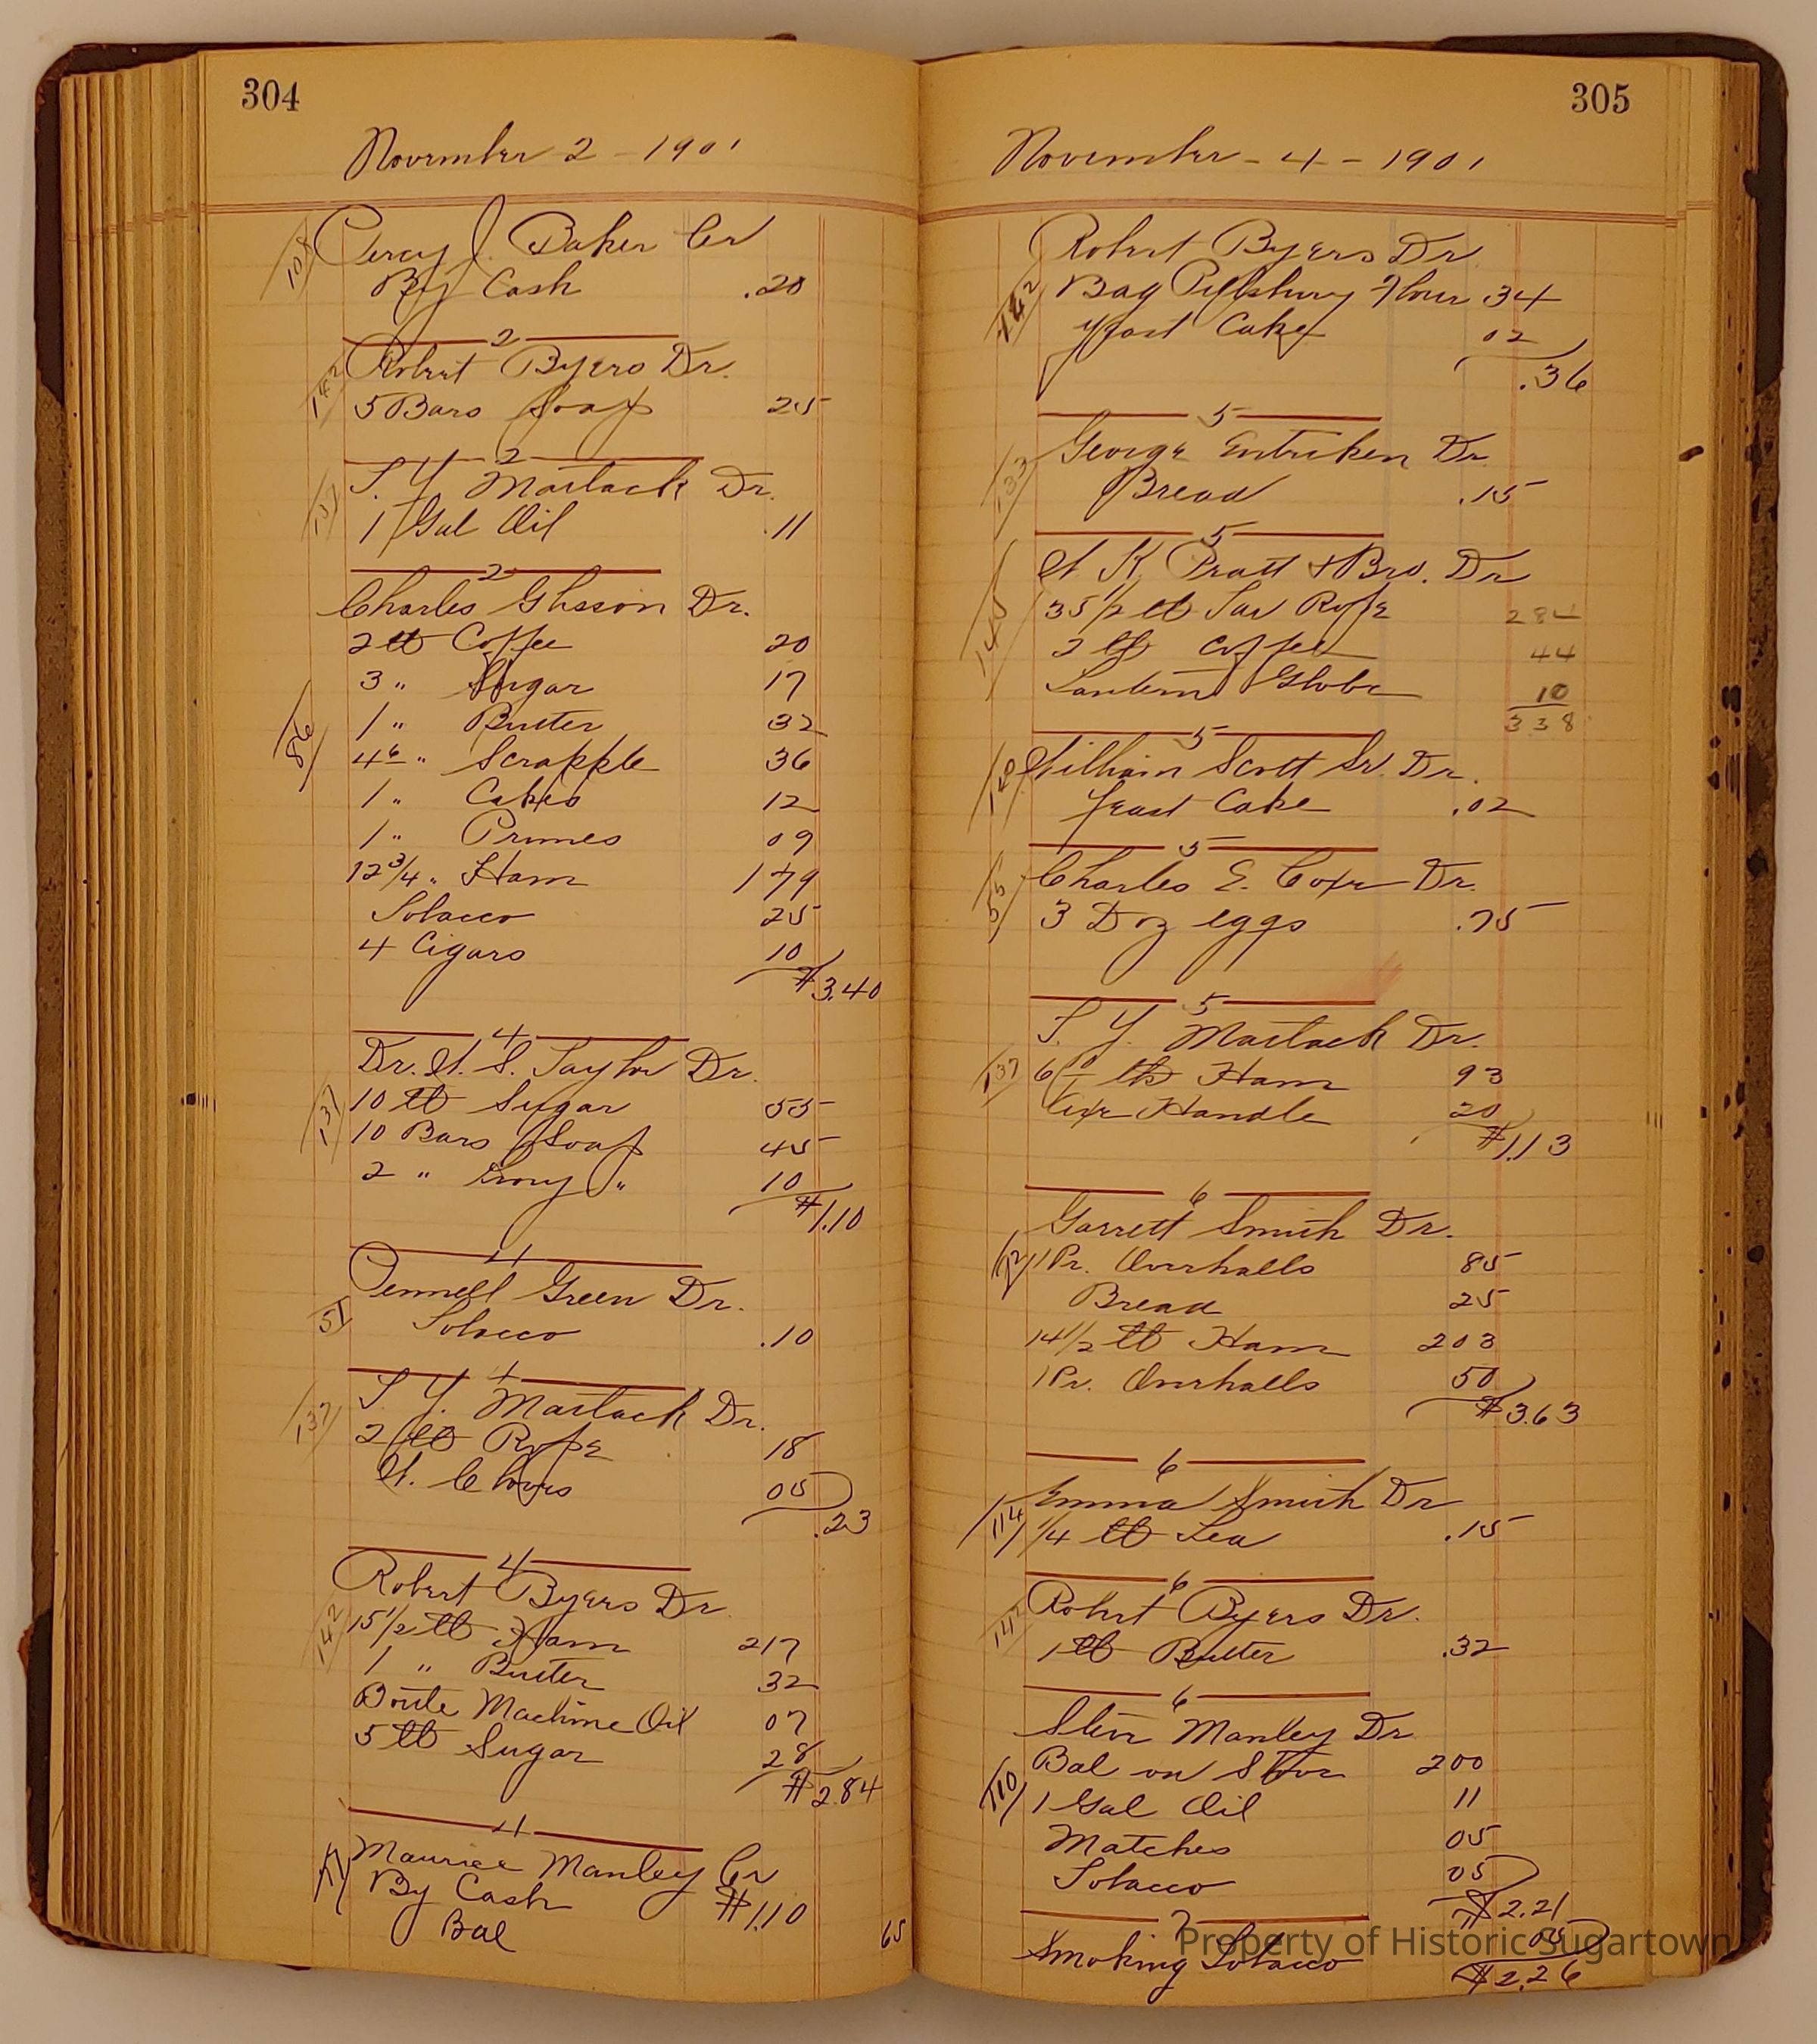 304
November 2 - 1901
108 Percy J. Baker Cr
By Cash .20
2
142 Robert Byers Dr.
5 Bars Soap 25
2
137 S. Y. Matlack Dr.
1 Gal Oil .11
2
Charles Glisson Dr.
2 lb Coffee 20
3 " Sugar 17
86 1 " Butter 32
4 6 " Scrapple 36
1 " Cakes 12
1 " Prunes 09
12 3/4 " Ham 179
Tobacco 25
4 Cigars 10
$3.40
4
Dr. W. S. Taylor Dr.
131 10 lb Sugar 55
10 Bars Soap 45
2 " Ivory " 10
$1.10
4
Pennell Green Dr.
51 Tobacco .10
4
137 S. Y. Matlack Dr.
2 lb Rope 18
W. Cloves 05
.23
4
Robert Byers Dr
142 15 1/2 lb Ham 217
1 " Butter 32
Bottle Machine Oil 07
5 lb Sugar 28
$2.84
4
Maurice Manley Cr
By Cash $1.10
Bal 65
305
November - 4 - 1901
Robert Byers Dr.
142 Bag Pillsbury Flour 34
Yeast Cake 02
.36
5
133 George Entriken Dr
Bread .15
5
W K Pratt + Bro. Dr
145 35 1/2 lb Tar Rope 284
2 lb Coffee 44
Lantern Globe 10
338
5
William Scott Sr. Dr.
Yeast Cake .02
5
55 Charles E. Coxe Dr.
3 Doz eggs .75
5
S. Y. Matlack Dr.
137 6 lb Ham 93
Axe Handle 20
$1.13
6
Garrett Smith Dr.
72 1 Pr. Overhalls 85
Bread 25
14 1/2 lb Ham 203
1 Pr. Overhalls 50
$3.63
6
Emma Smith Dr
114 1/4 lb Tea .15
6
142 Robert Byers Dr.
1 lb Butter .32
6
Stev Manley Dr
Bal on Stove 200
110 1 Gal Oil 11
Matches 05
Tobacco 05
$2.21
7
Smoking Tobacco 05
$2.26
Property of Historic Sugartown